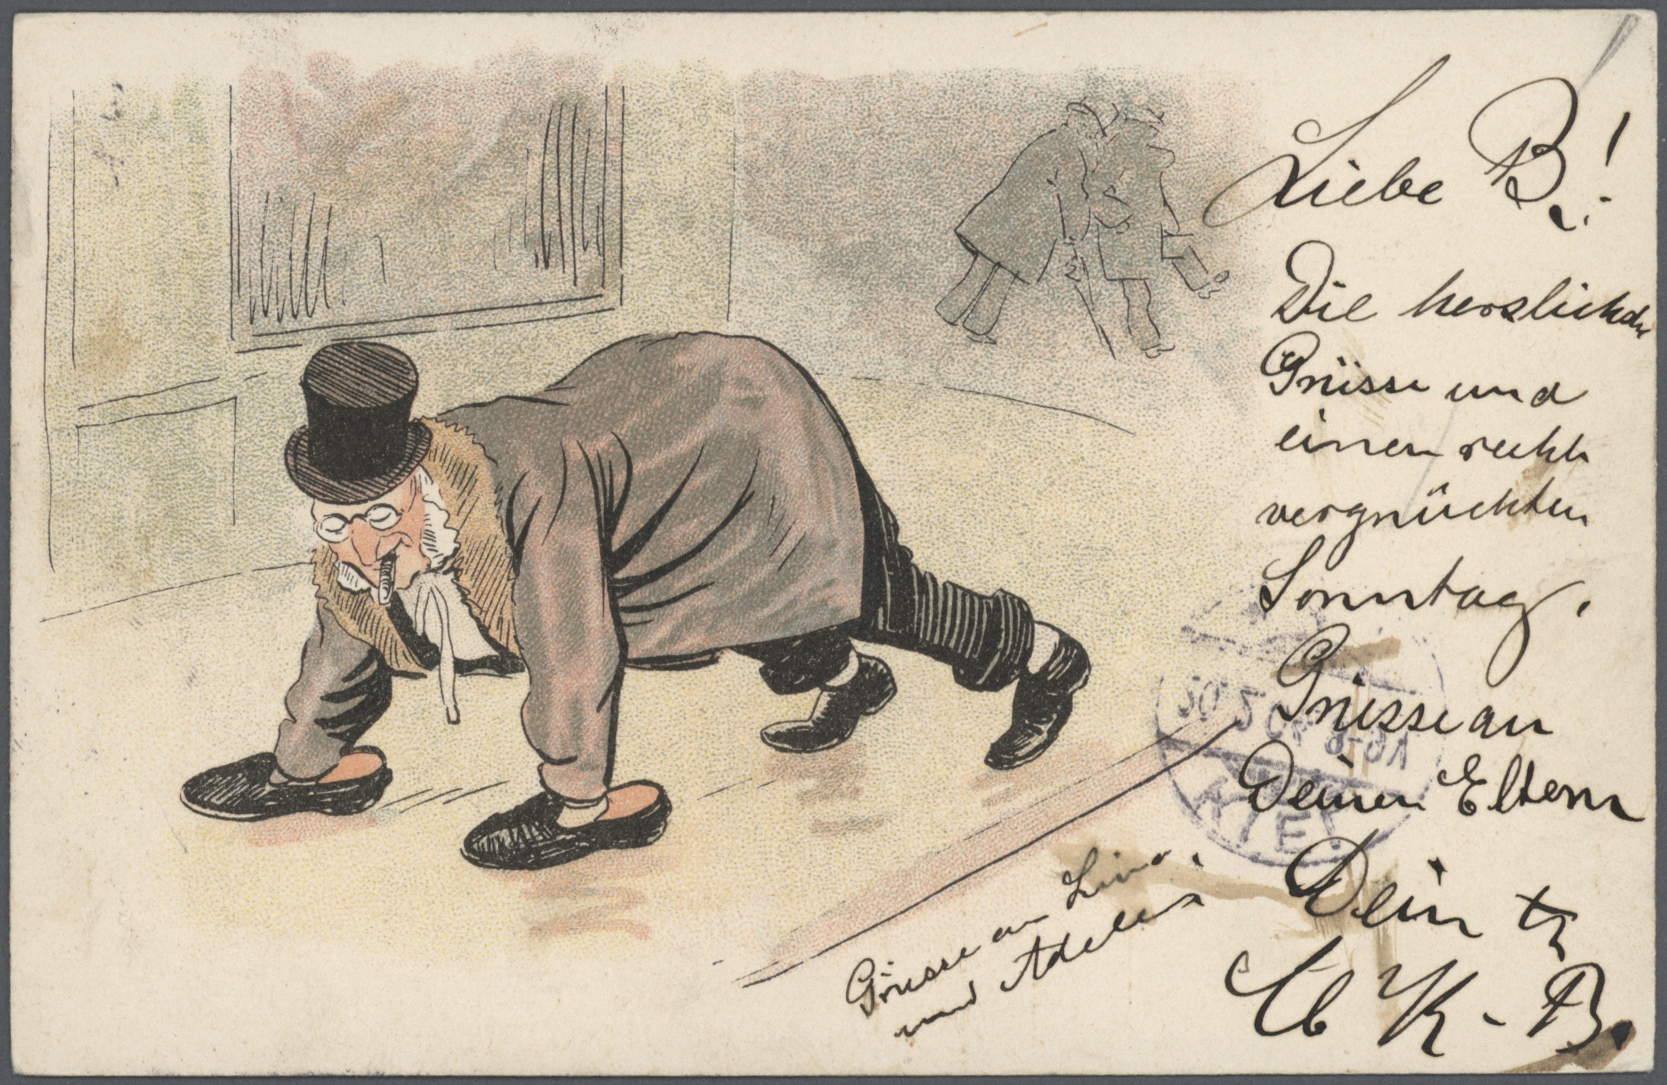 Liebe B.!
Die herzlichsten
Grüsse und
einen recht
vergnüchten
Sonntag.
Grüsse an
Deinen Eltern
Dein
K-B.
Grüsse an Lina
und Adele
KIEL